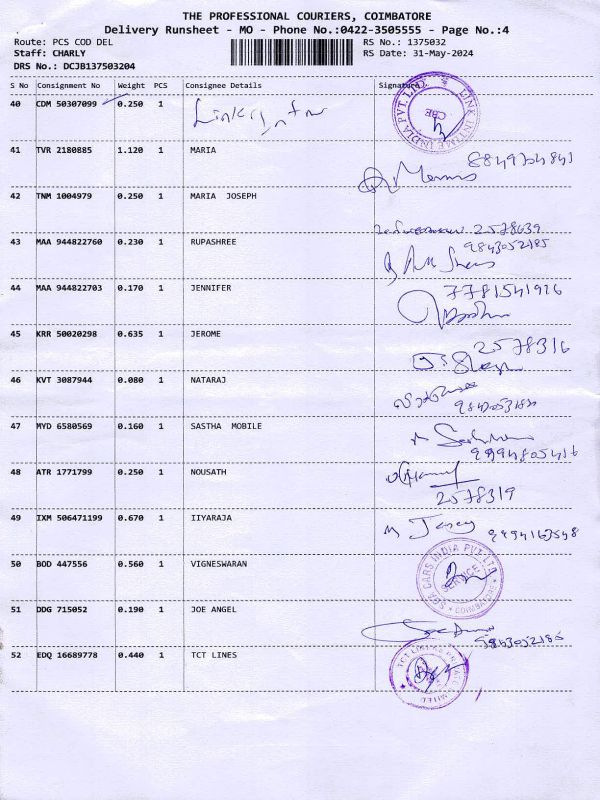 THE PROFESSIONAL COURIERS, COIMBATORE
Delivery Runsheet - MO - Phone No.:0422-3505555 - Page No.:4
Route: PCS COD DEL RS No.: 1375032
Staff: CHARLY RS Date: 31-May-2024
DRS No.: DCJB137503204
S No Consignment No Weight PCS Consignee Details Signature
40 CDM 50307099 0.250 1 LINK INTIME INDIA PVT. LTD. CBE
41 TVR 2180885 1.120 1 MARIA
42 TNM 1004979 0.250 1 MARIA JOSEPH
2578639
43 MAA 944822760 0.230 1 RUPASHREE 9843052185
44 MAA 944822703 0.170 1 JENNIFER 7781541926
45 KRR 50020298 0.635 1 JEROME 2578316
46 KVT 3087944 0.080 1 NATARAJ
47 MYD 6580569 0.160 1 SASTHA MOBILE
9994805416
48 ATR 1771799 0.250 1 NOUSATH
2578319
49 IXM 506471199 0.670 1 IIYARAJA 9894163548
50 BOD 447556 0.560 1 VIGNESWARAN SGA CARS INDIA PVT. LTD SERVICE COIMBATORE
51 DDG 715052 0.190 1 JOE ANGEL
9843052186
52 EDQ 16689778 0.440 1 TCT LINES